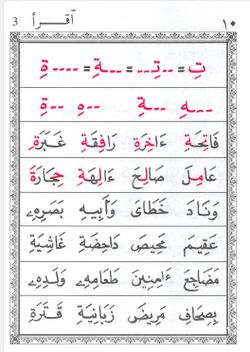 ١٠ اَقرأ 3
تِ = ـتِـ = ـةِ = ةِ
ـهِ ـةِ هِ ةِ
فَاتِحَةِ ءَاخِرَةِ رَافِقَةِ غَبَرَةِ
عَامِلَ صَالِحَ ءَالِهَةِ حِجَارَةِ
وَنَادَ خَطَاىَ وَأَبِيهِ بَصَرِهِۦ
عَقِيمَ مَحِيصَ دَاحِضَةِ غَاشِيَةِ
مَضَاجِعِ ءَامِنِينَ طَعَامِهِۦ وَلَدِهِۦ
بِصِحَافِ مَرِيضَ زَبَانِيَةِ قَتَرَةِ